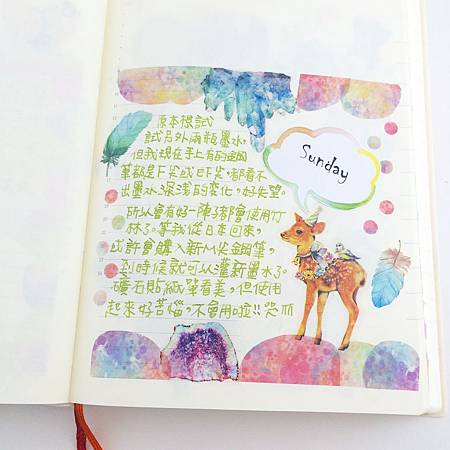 原本想試
試另外兩瓶墨水,
但我現在手上有的鋼
筆都是F尖或EF尖,都看不
出墨水深淺的變化,好失望。
所以會有好一陣子都會使用竹
林了。等我從日本回來,
或許會購入新M尖鋼筆,
到時候就可以灌新墨水了。
礦石貼紙雖看美,但使用
起來好苦惱,不會用啦!!哭爪
Sunday